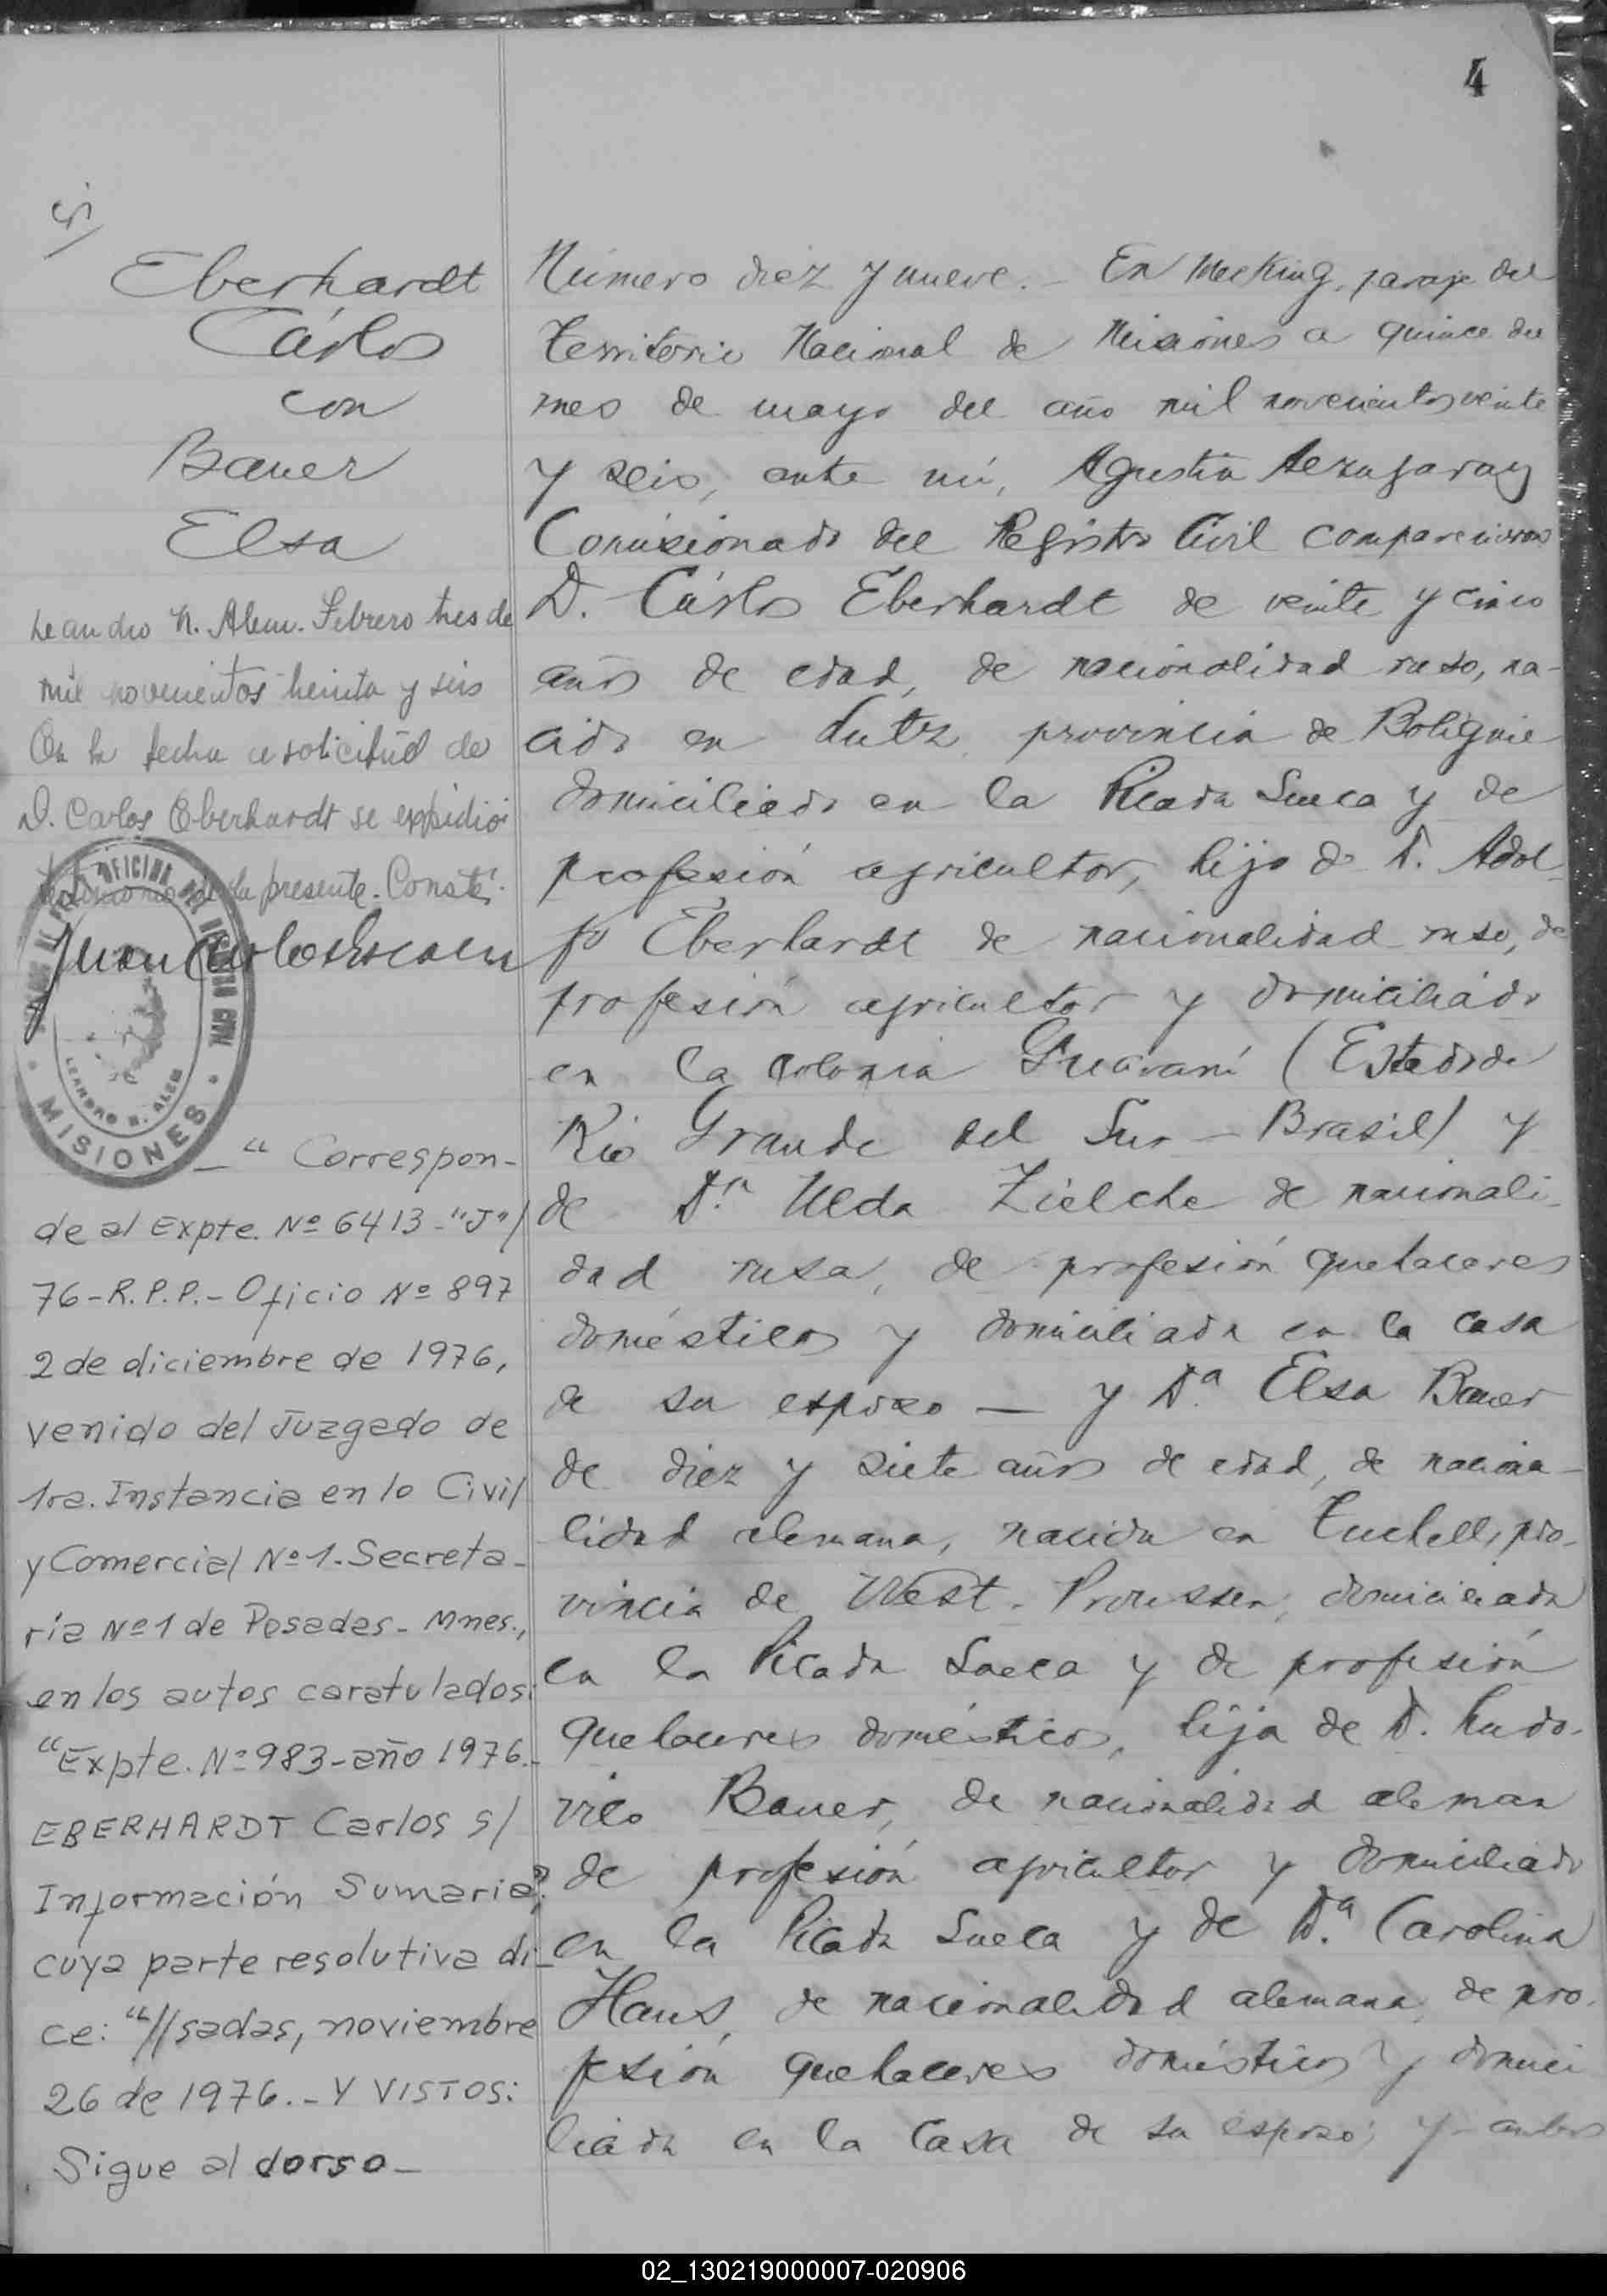 4
Eberhardt
Cárlos
con
Bauer
Elsa
Leandro N. Alem. Febrero tres de
mil novecientos treinta y seis
En la fecha a solicitud de
D. Carlos Eberhardt se expidió
testimonio de la presente. Conste.
OFICINA DEL REGISTRO CIVIL
LEANDRO N. ALEM
MISIONES
"Correspon-
de al Expte. Nº 6413-"J"/
76-R.P.P.- Oficio Nº 897
2 de diciembre de 1976,
venido del Juzgado de
1ra. Instancia en lo Civil
y Comercial Nº1. Secreta-
ría Nº1 de Posadas- Mnes.,
en los autos caratulados:
"Expte. Nº983-año 1976.-
EBERHARDT Carlos s/
Información Sumaria",
cuya parte resolutiva di-
ce: "//sadas, noviembre
26 de 1976.- Y VISTOS:
Sigue al dorso-
Número diez y nueve.- En Mecking, paraje del
Territorio Nacional de Misiones a quince del
mes de mayo del año mil novecientos veinte
y seis, ante mí, Agustín
Comisionado del Registro Civil comparecieron
D. Cárlos Eberhardt de veinte y cinco
años de edad, de nacionalidad ruso, na-
cido en Lutz, provincia de Bolignie
domiciliado en la Picada Sueca y de
profesión agricultor, hijo de D. Adol-
fo Eberhardt de nacionalidad ruso, de
profesión agricultor y domiciliado
en la colonia Guaraní (Estado de
Río Grande del Sur - Brasil) y
de Dª. Ulda Zielche de nacionali-
dad rusa, de profesión quehaceres
domésticos y domiciliada en la casa
de su esposo — y Dª. Elsa Bauer
de diez y siete años de edad, de naciona-
lidad alemana, nacida en Tuchell, pro-
vincia de West. Preussen, domiciliada
en la Picada Sueca y de profesión
quehaceres domésticos, hija de D. Ludo-
vico Bauer, de nacionalidad aleman
de profesión agricultor y domiciliado
en la Picada Sueca y de Dª. Carolina
Haus, de nacionalidad alemana, de pro-
fesión quehaceres domésticos y domici
liada en la casa de su esposo; y ambos
02_130219000007-020906